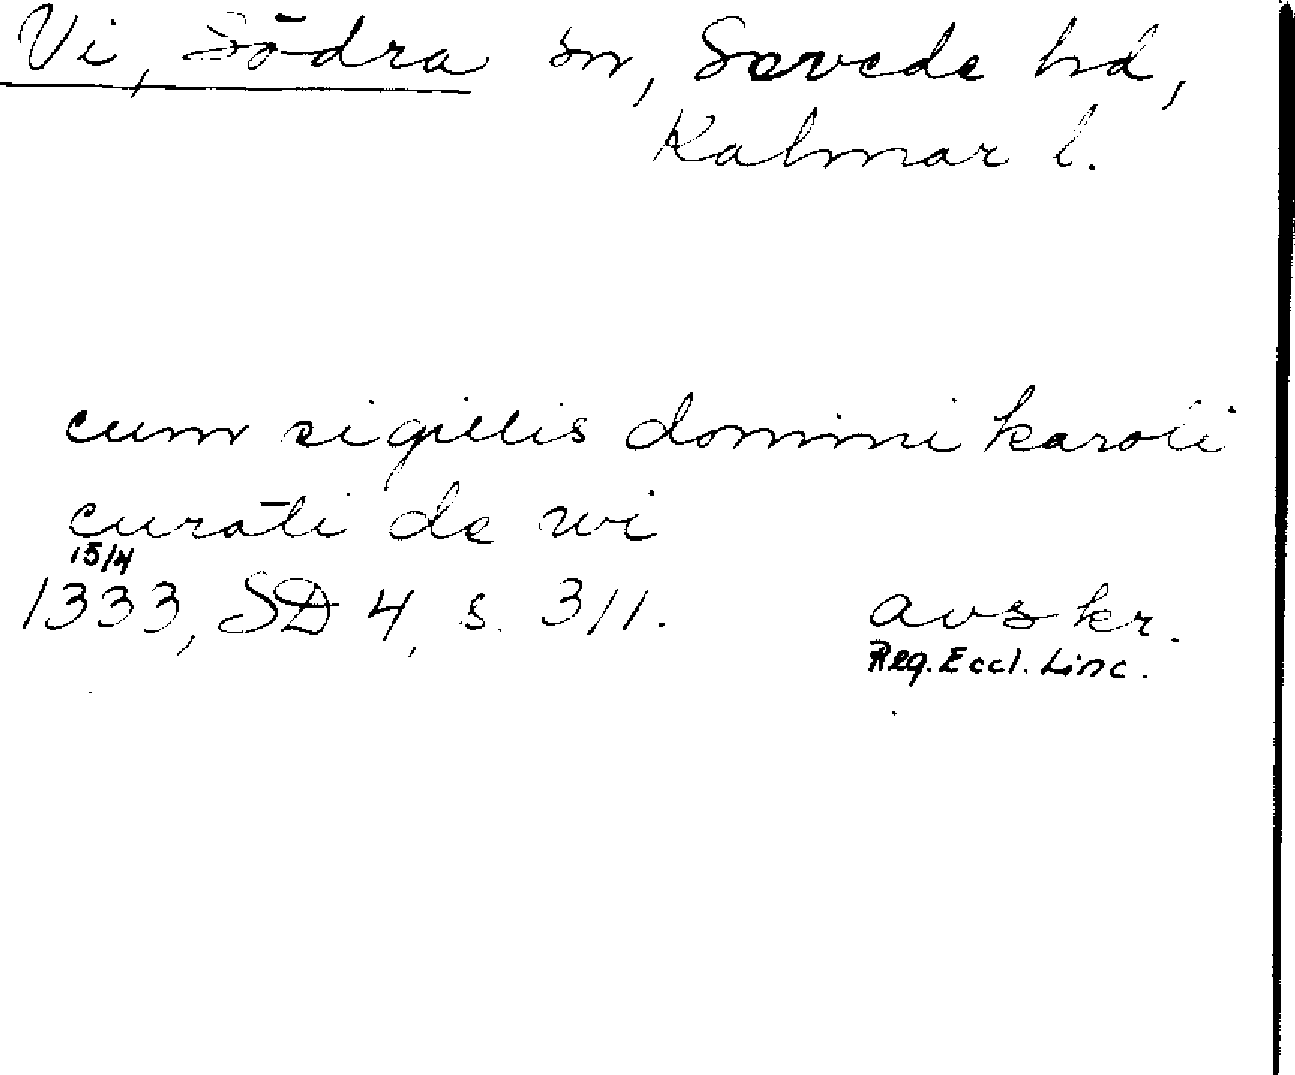 Vi, Södra sn, Sevede hd,
Kalmar l.
cum sigillis domini karoli
curati de wi
15/4
1333, SD 4, s. 311. avskr.
Reg. Eccl. Linc.